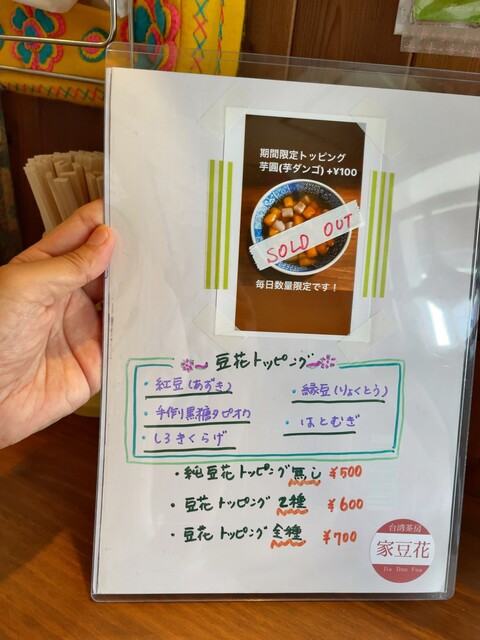 期間限定トッピング
芋圓(芋ダンゴ)+¥100
SOLD OUT
毎日数量限定です!
豆花トッピング
・紅豆(あずき)
・緑豆(りょくとう)
・手作り黒糖タピオカ
・はとむぎ
・しろきくらげ
・純豆花トッピング無し ¥500
・豆花トッピング2種 ¥600
・豆花トッピング全種 ¥700
台湾茶房
家豆花
Jia Dou Fua